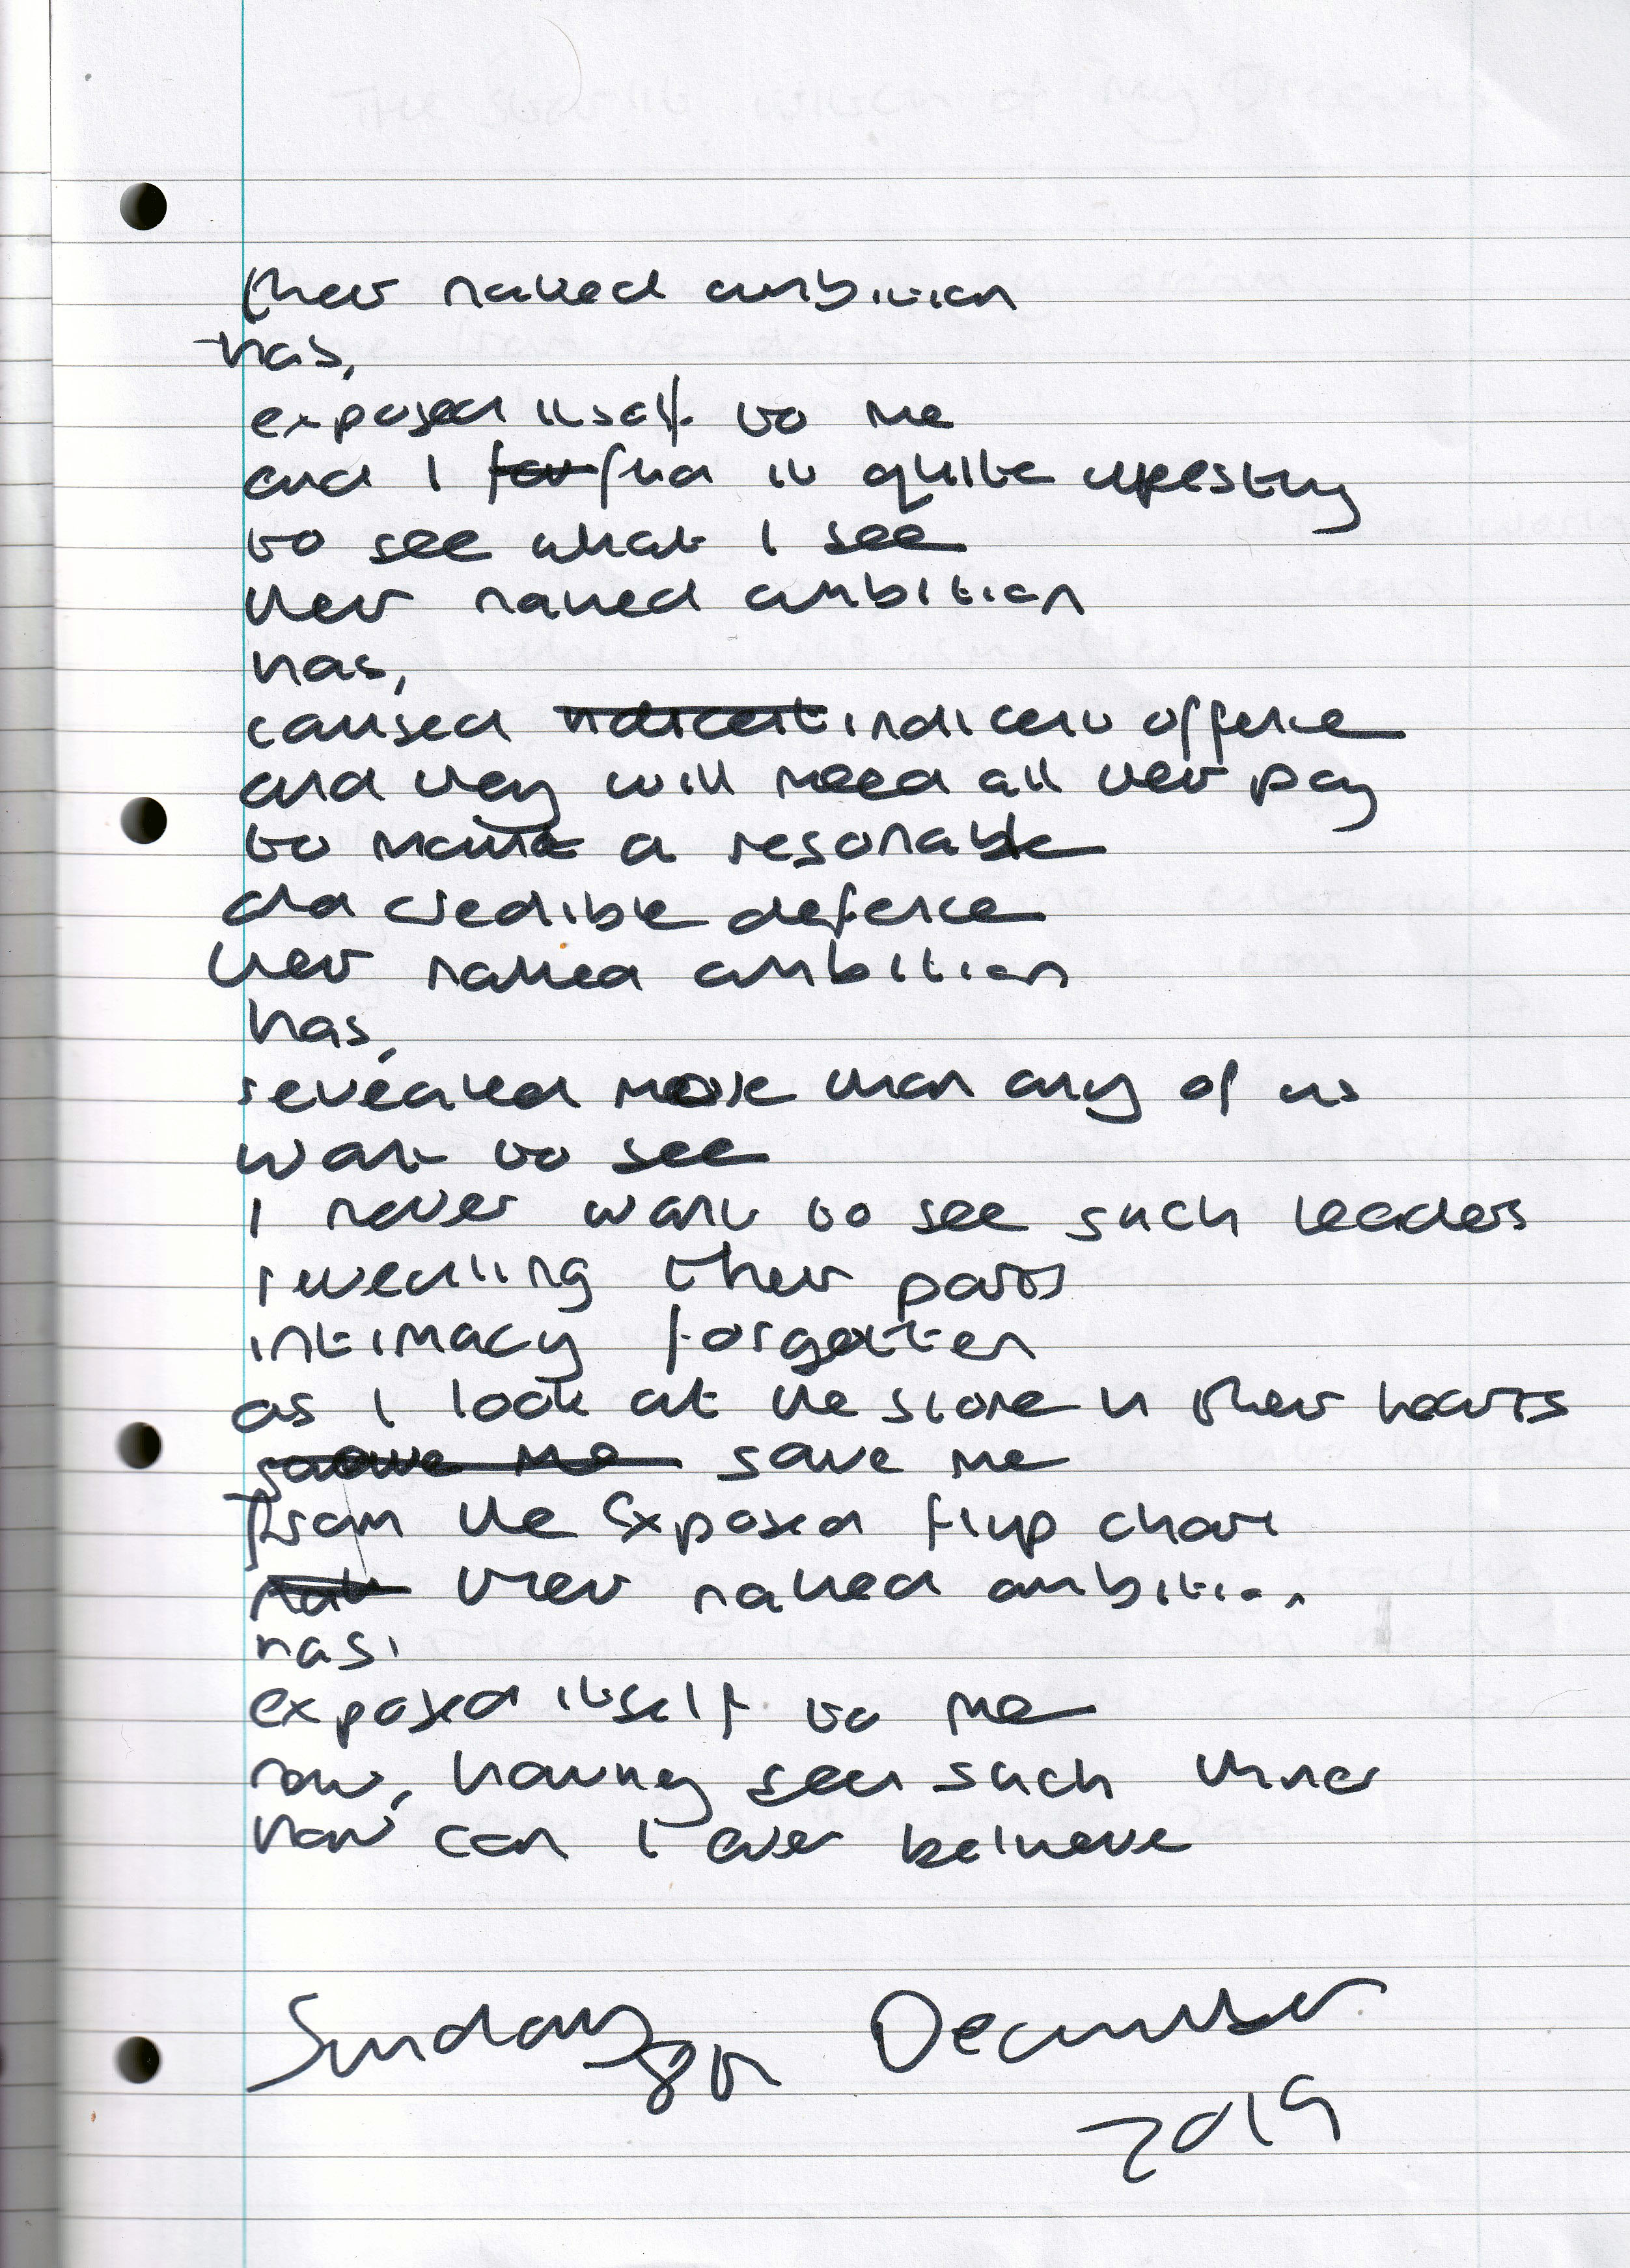 their naked ambition
has,
exposed itself to me
and I find it quite upesting
to see what I see
their naked ambition
has,
caused indicent offence
and they will need all their pay
to make a resonable
and credible defence
their naked ambition
has,
revealed more than any of us
want to see
I never want to see such leaders
revealing their parts
intimacy forgotten
as I look at the stone in their hearts
save me
from the exposed flip chart
their naked ambition
has,
exposed itself to me
now, having seen such things
how can I ever believe
Sunday 8th December
2019